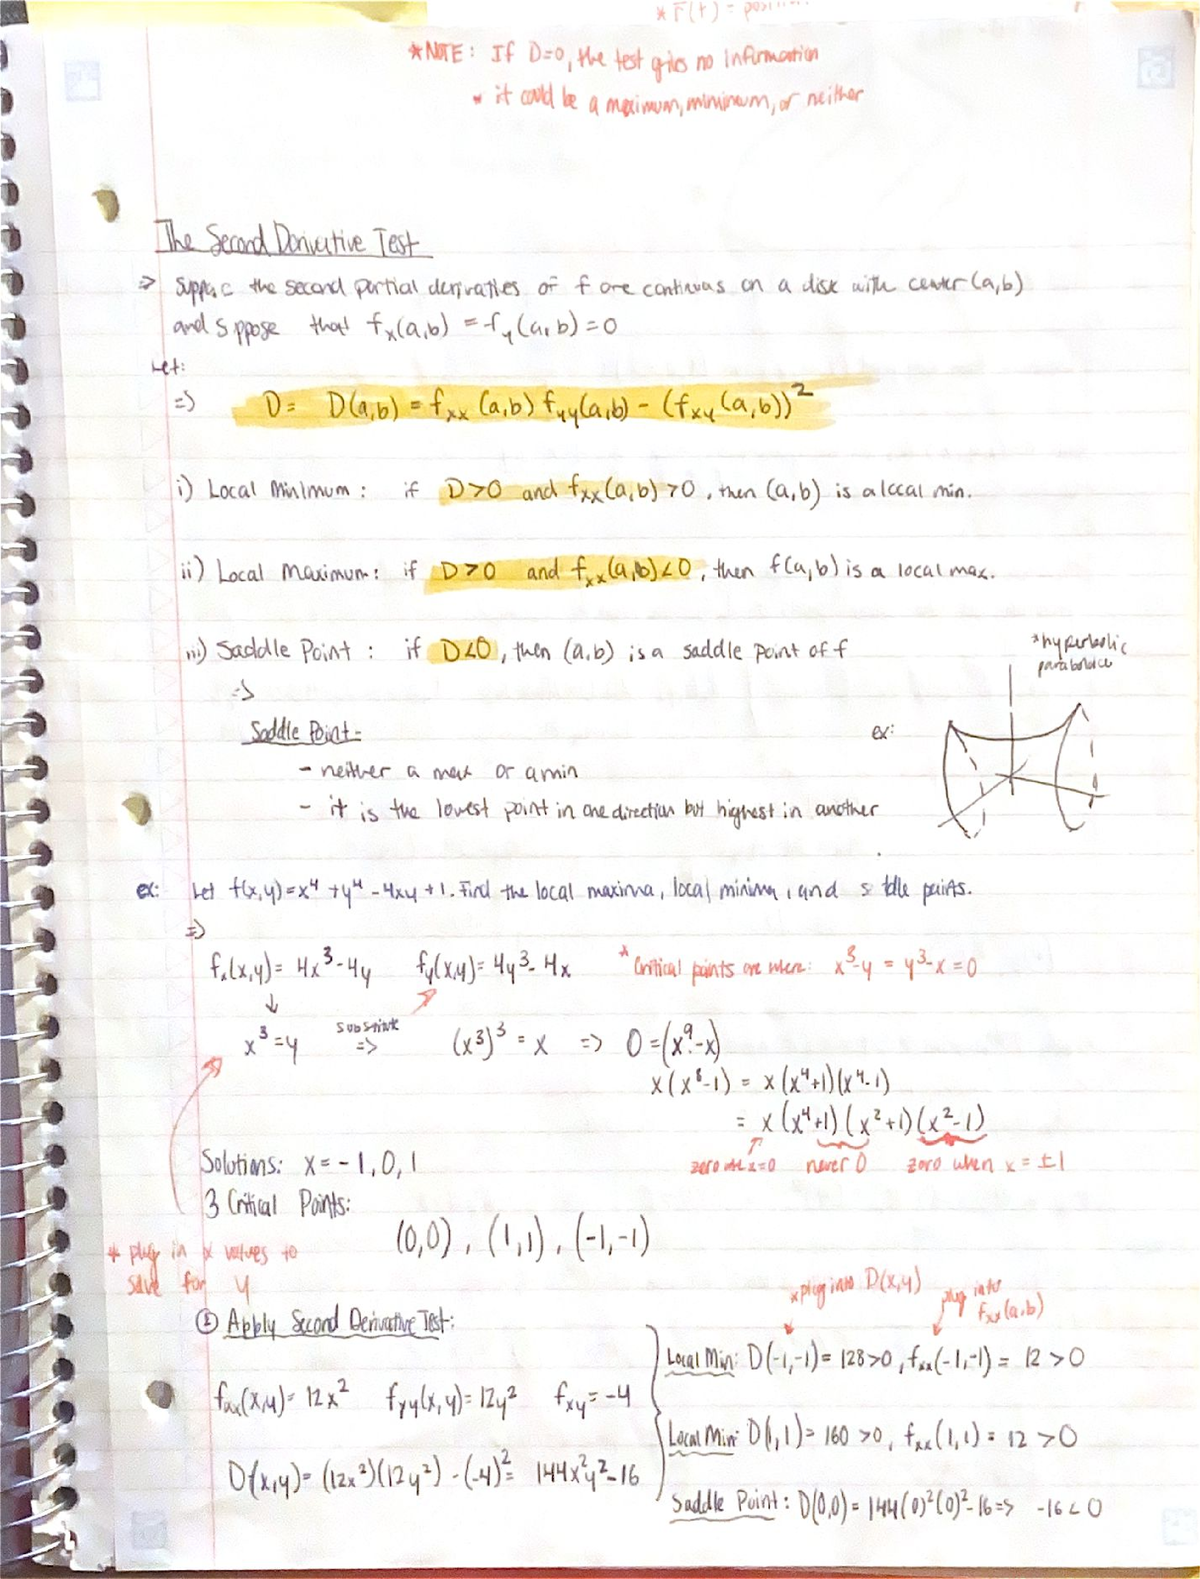 * r(t) = posi
*NOTE: If D=0, the test gives no information
* it could be a maximum, minimum, or neither
The Second Derivative Test
=> Suppose the second partial derivatives of f are continuas on a disk with center (a,b)
and sppose that fx(a,b) = fy(a,b) = 0
Let:
=> D = D(a,b) = fxx (a,b) fyy(a,b) - (fxy (a,b))²
i) Local Minimum: if D>0 and fxx(a,b) >0, then (a,b) is a local min.
ii) Local Maximum: if D>0 and fxx(a,b)<0, then f(a,b) is a local max.
iii) Saddle Point: if D<0, then (a,b) is a saddle point of f
=>
*hyperbolic
Saddle Point-
ex:
- neither a max or a min
- it is the lowest point in one direction but highest in another
ex: Let f(x,y)=x⁴+y⁴-4xy+1. Find the local maxima, local minima, and points.
=>
fx(x,y)= 4x³-4y fy(x,y)= 4y³-4x *Critical points are where: x³-y = y³-x = 0
↓
x³=y => (x³)³ = x => 0=(x⁹-x)
x(x⁸-1) = x(x⁴+1)(x⁴-1)
= x(x⁴+1)(x²+1)(x²-1)
zero at x=0 never 0 zero when x = ±1
Solutions: x = -1, 0, 1
3 Critical Points:
(0,0), (1,1), (-1,-1)
* plug in x values to
solve for y
*plug into D(x,y) plug into
fxx(a,b)
② Apply Second Derivative Test:
Local Min: D(-1,-1)= 128>0, fxx(-1,-1) = 12 >0
fxx(x,y)= 12x² fyy(x,y)= 12y² fxy = -4
Local Min: D(1,1)= 160 >0, fxx(1,1) = 12 >0
D(x,y)= (12x²)(12y²) - (-4)² = 144x²y²-16
Saddle Point: D(0,0)= 144(0)²(0)²-16 => -16<0